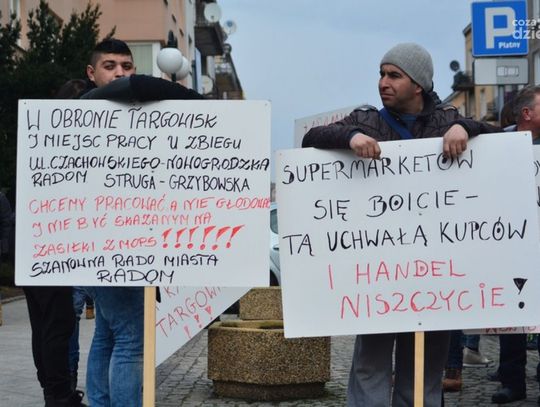 W OBRONIE TARGOWISK
I MIEJSC PRACY U ZBIEGU
UL. CZACHOWSKIEGO-NOWOGRODZKA
RADOM STRUGA-GRZYBOWSKA
CHCEMY PRACOWAĆ A NIE GŁODOWAĆ
I NIE BYĆ SKAZANYM NA
ZASIŁKI Z MOPS !!!!!!!
SZANOWNA RADO MIASTA
RADOM
SUPERMARKETÓW
SIĘ BOICIE -
TĄ UCHWAŁĄ KUPCÓW
I HANDEL
NISZCZYCIE !
P
Płatny